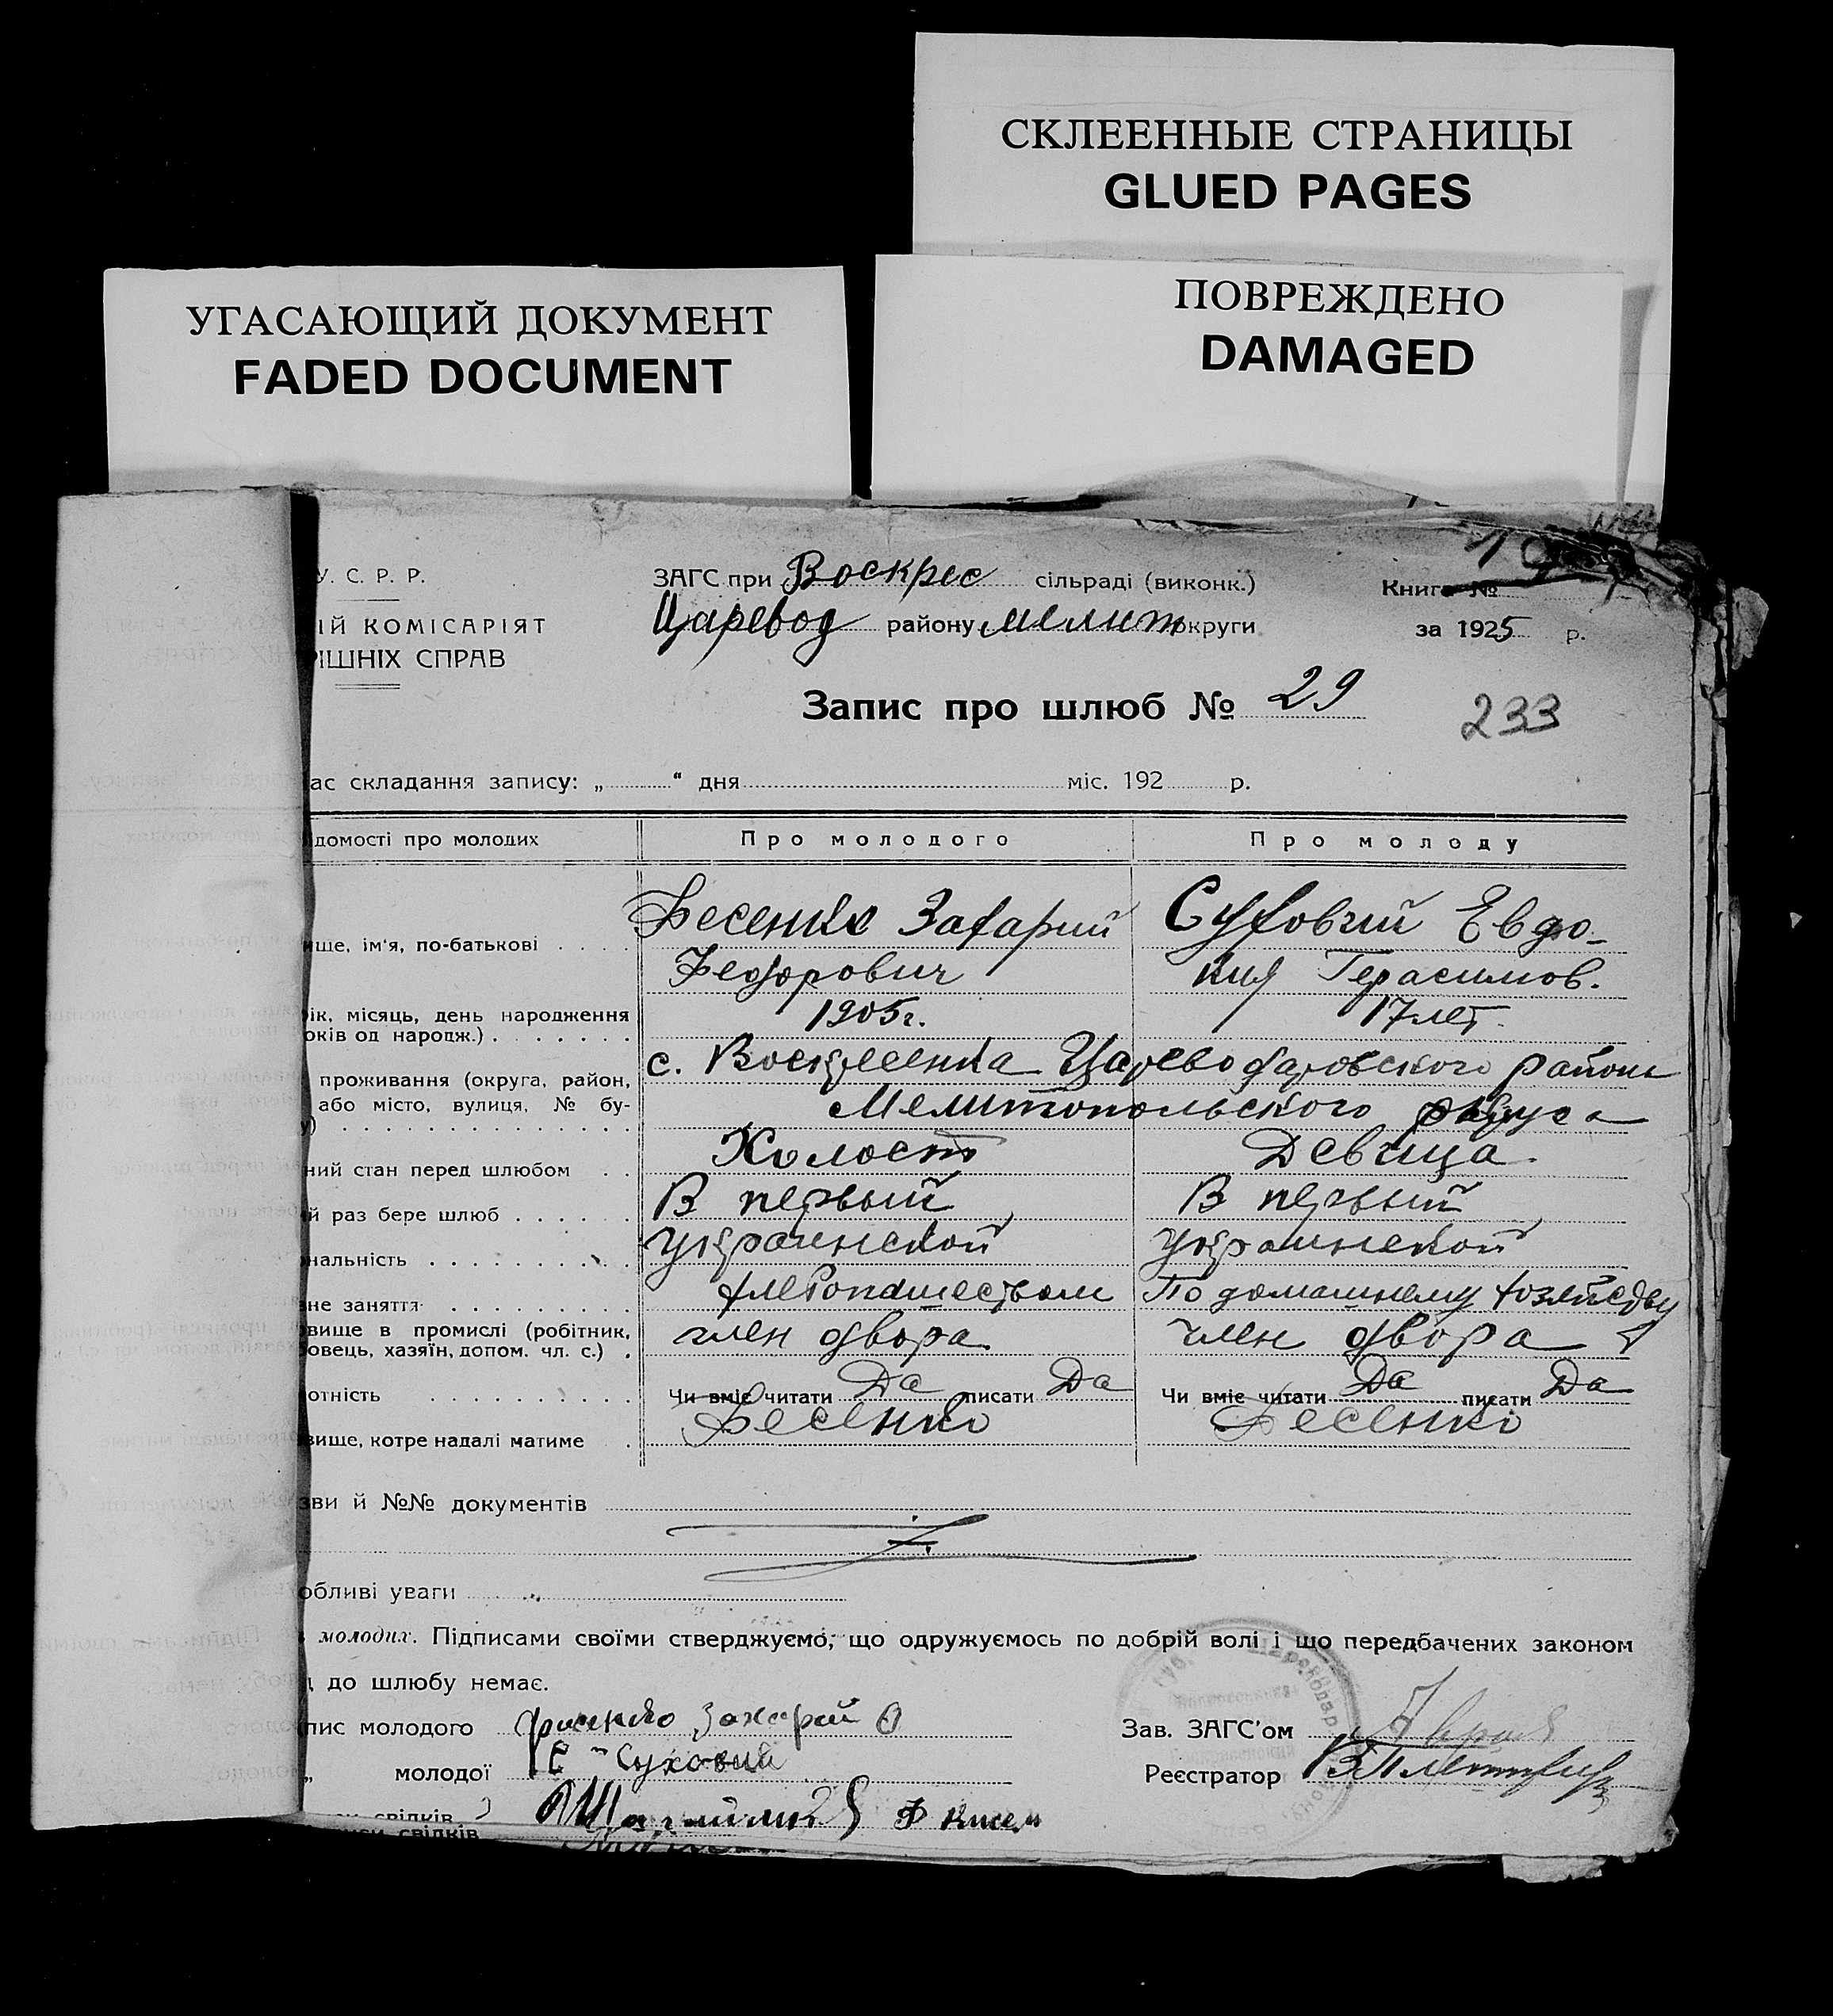 СКЛЕЕННЫЕ СТРАНИЦЫ
GLUED PAGES
ПОВРЕЖДЕНО
DAMAGED
УГАСАЮЩИЙ ДОКУМЕНТ
FADED DOCUMENT
У. С. Р. Р.
ІЙ КОМІСАРІЯТ
РІШНІХ СПРАВ
ЗАГС при Воскрес сільраді (виконк.)
Царевод району Мелит округи
Книга №
за 1925 р.
Запис про шлюб № 29
233
ас складання запису: „ “ дня міс. 192 р.
домості про молодих
Про молодого
Про молоду
ище, ім'я, по-батькові
Фесенко Захарий
Суховий Евдо-
Федорович
кия Герасимов.
ік, місяць, день народження
оків од народж.)
1905г.
17 лет.
проживання (округа, район,
або місто, вулиця, № бу-
у)
с. Воскресенка Цареводаровского района
Мелитопольского округа
ний стан перед шлюбом
Холост
Девица
й раз бере шлюб
В первый
В первый
нальність
украинской
украинской
вне заняття
хлебопашеством
По домашнему хозяйству
вище в промислі (робітник,
овець, хазяїн, допом. чл. с.)
член двора
член двора
отність
Чи вміє читати Да писати Да
Чи вміє читати Да писати Да
вище, котре надалі матиме
Фесенко
Фесенко
зви й №№ документів
обливі уваги
молодих. Підписами своїми стверджуємо, що одружуємось по добрій волі і що передбачених законом
до шлюбу немає.
пис молодого
Захарий
Зав. ЗАГС'ом
„ молодої
Е Суховий
Реєстратор
свідків
свідків